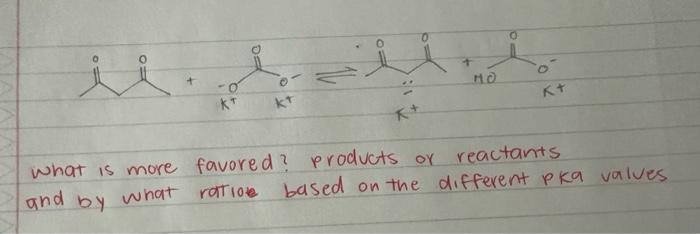 O O + O -O O- K+ K+ ⇌ O O K+ + O HO O- K+
what is more favored? products or reactants
and by what ratio based on the different pka values